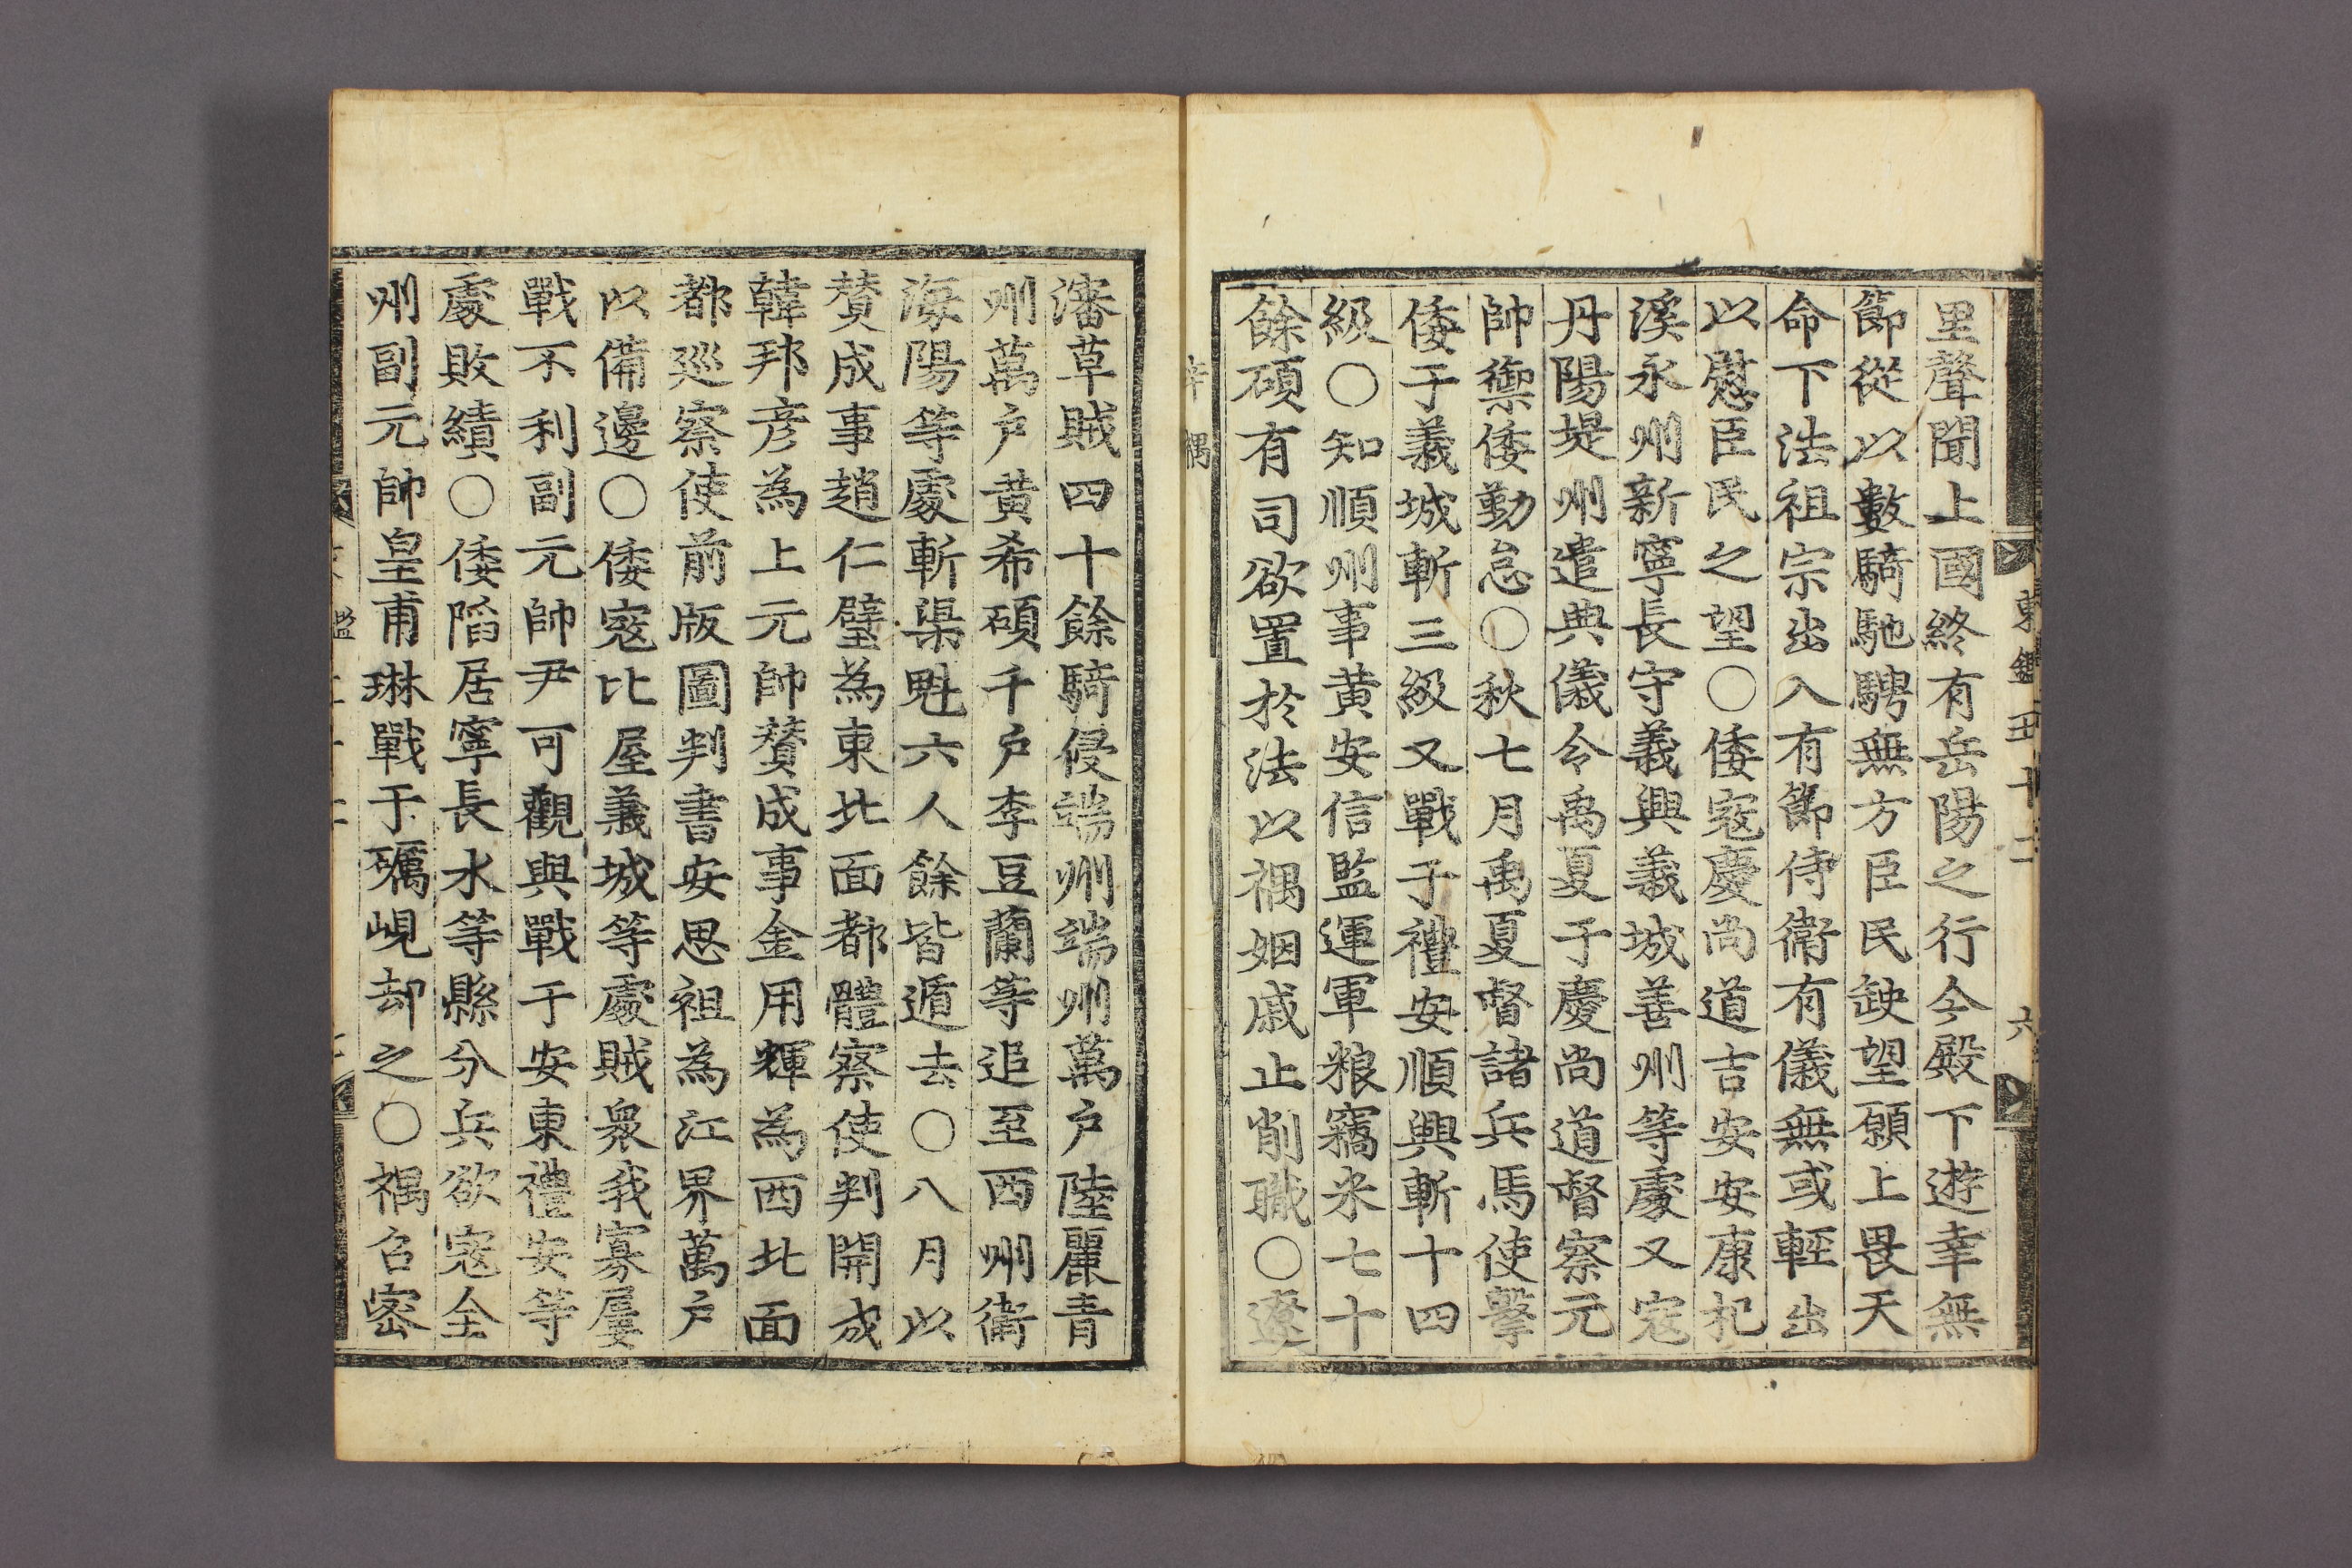 東鑑五十二 六
里聲聞上國終有岳陽之行今殿下遊幸無
節從以數騎馳騁無方臣民缺望願上畏天
命下法祖宗出入有節侍衛有儀無或輕出
以慰臣民之望○倭寇慶尚道吉安安康杞
溪永州新寧長守義興義城善州等處又寇
丹陽堤州遣典儀令禹夏于慶尚道督察元
帥禦倭勤怠○秋七月禹夏督諸兵馬使擊
倭于義城斬三級又戰于禮安順興斬十四
級○知順州事黃安信監運軍粮竊米七十
餘碩有司欲置於法以禑姻戚止削職○遼
辛禑
瀋草賊四十餘騎侵端州端州萬戶陸麗青
州萬戶黃希碩千戶李豆蘭等追至西州衛
海陽等處斬渠魁六人餘皆遁去○八月以
賛成事趙仁璧為東北面都體察使判開成
韓邦彦為上元帥賛成事金用輝為西北面
都巡察使前版圖判書安思祖為江界萬戶
以備邊○倭寇比屋義城等處賊衆我寡屢
戰不利副元帥尹可觀與戰于安東禮安等
處敗績○倭陷居寧長水等縣分兵欲寇全
州副元帥皇甫琳戰于礪峴却之○禑召密